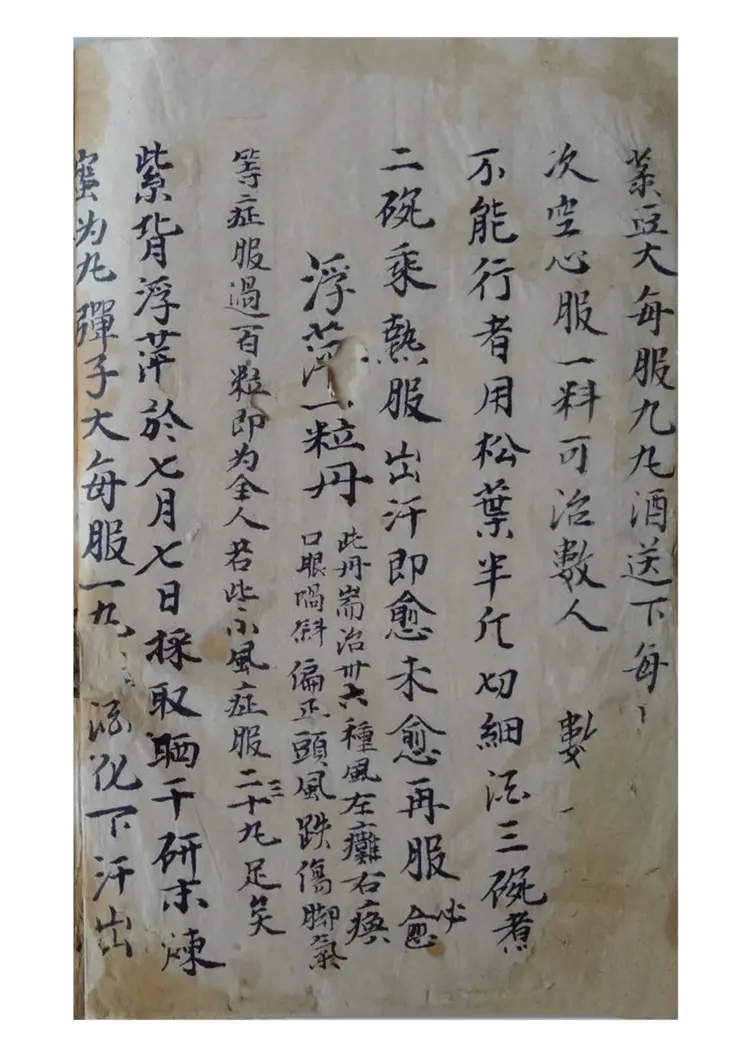 菉豆大每服九丸酒送下每
次空心服一料可治數人 數
不能行者用松葉半斤切細酒三碗煮
二碗乘熱服出汗即愈未愈再服必愈
浮萍一粒丹
此丹耑治卅六種風左癱右瘓
口眼喎斜偏正頭風跌傷脚氣
等症服過百粒即为全人若些小風症服二三十丸足矣
紫背浮萍於七月七日採取晒干研末煉
蜜为丸彈子大每服一丸酒化下汗出